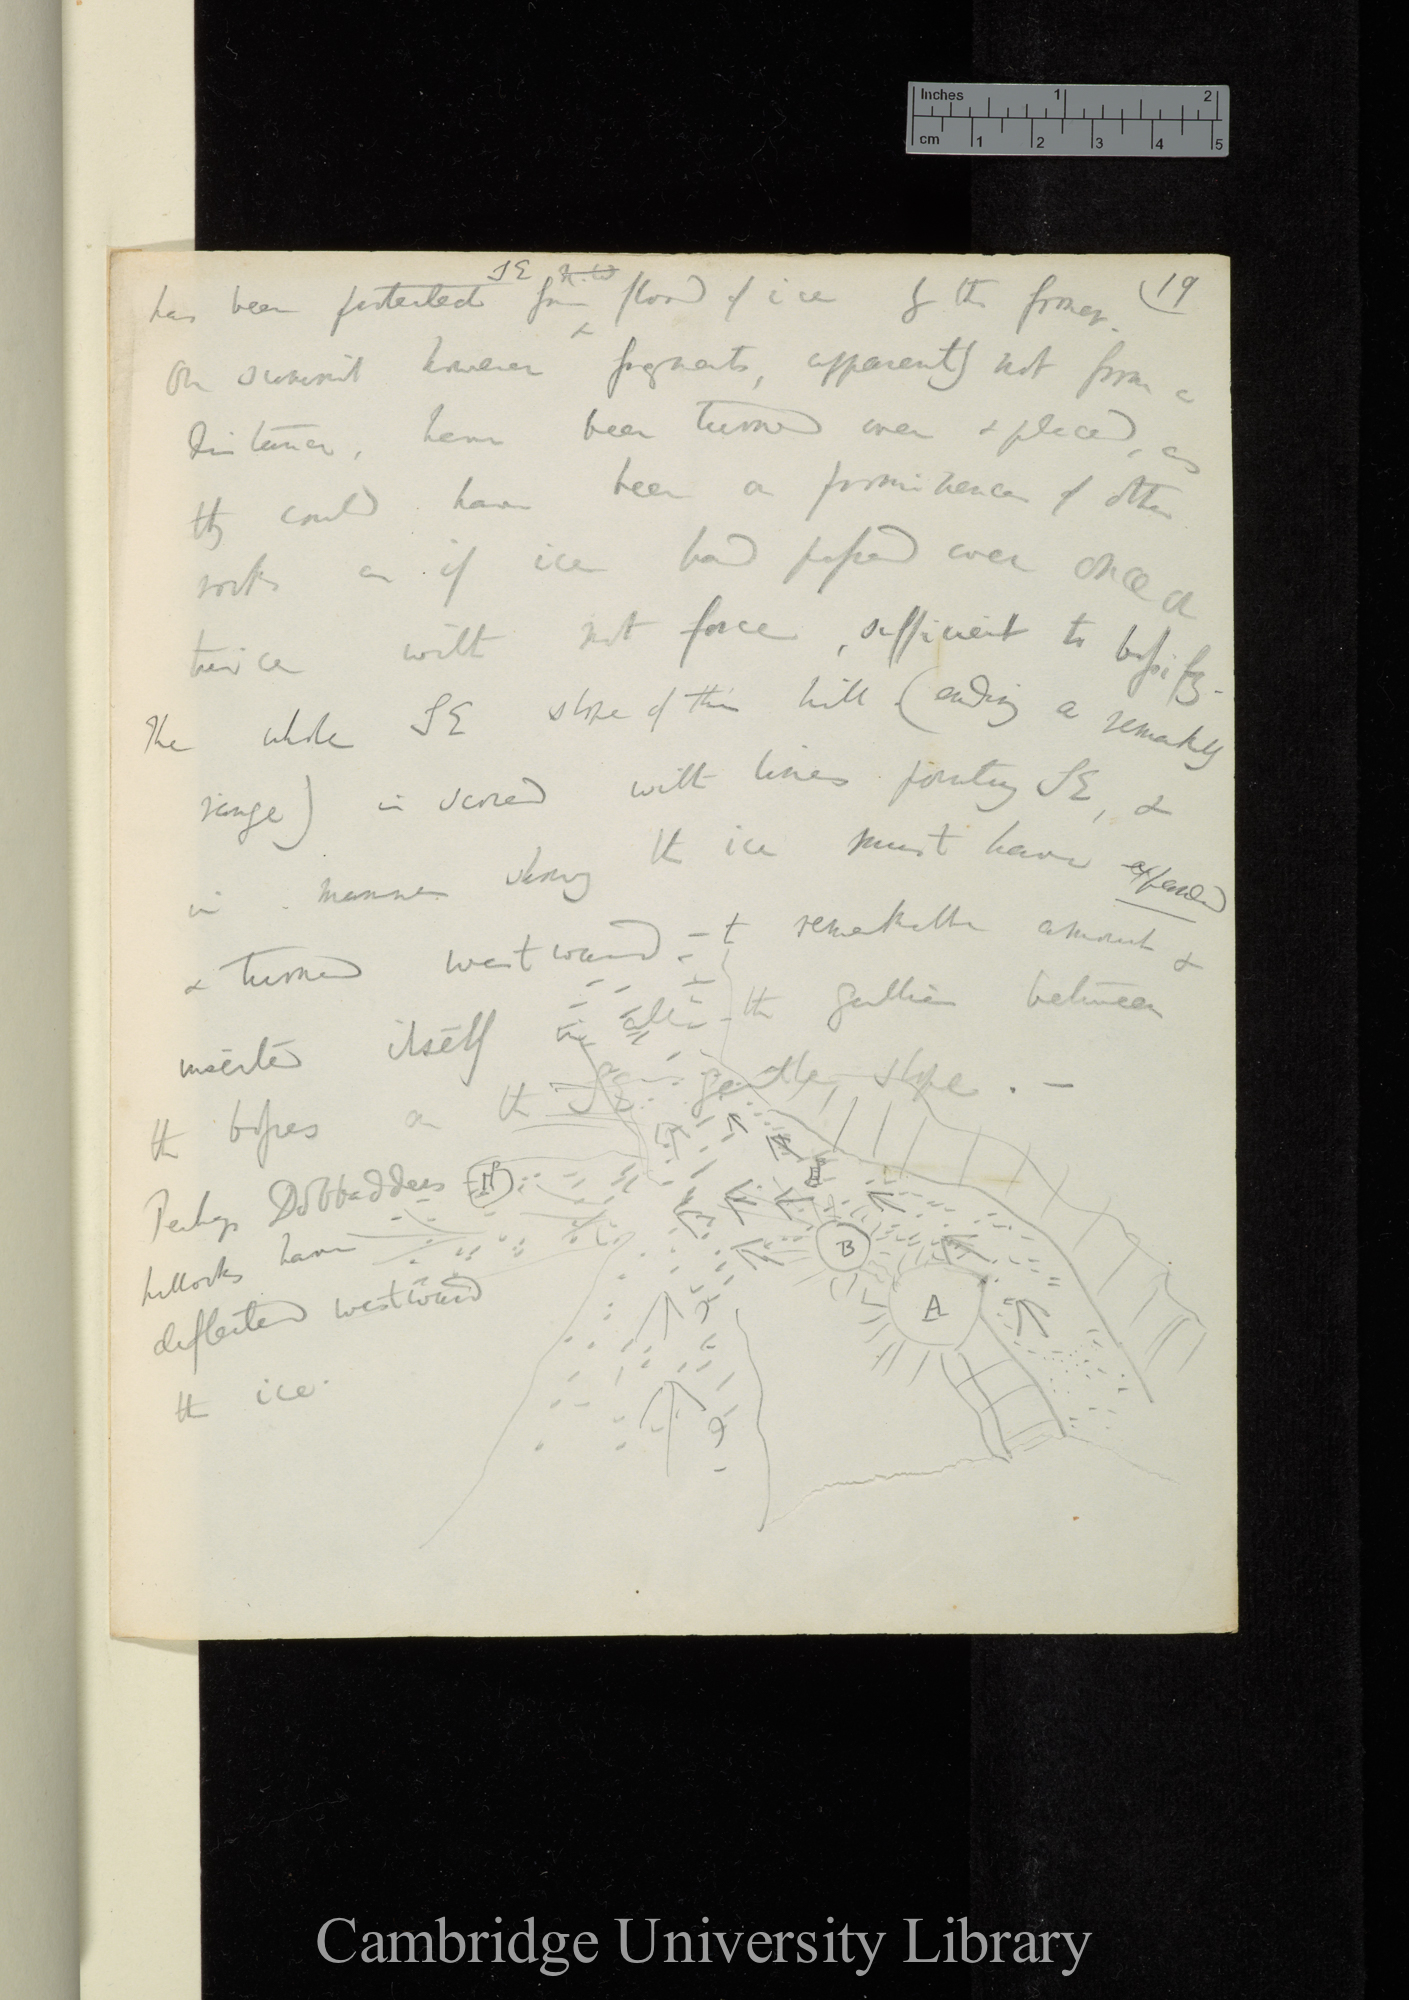 Inches 1 2
cm 1 2 3 4 5
19
SE N.W
has been protected from flood of ice by the former.
On summit however fragments, apparently not from a
distance, have been turned over & placed, as
they could have been on prominences of other
rocks as if ice had passed over once or
twice with not force, sufficient to bossify.
The whole SE slope of this hill (ending a remarkably
range) is scored with lines pointing SE, &
in manner showing the ice must have expanded
& turned westward to remarkable amount &
inserted itself in all the gullies between
the bosses on the SE gentle slope. —
Perhaps Dobbaddees H
hillocks have
deflected westward
the ice.
H
B
A
Cambridge University Library